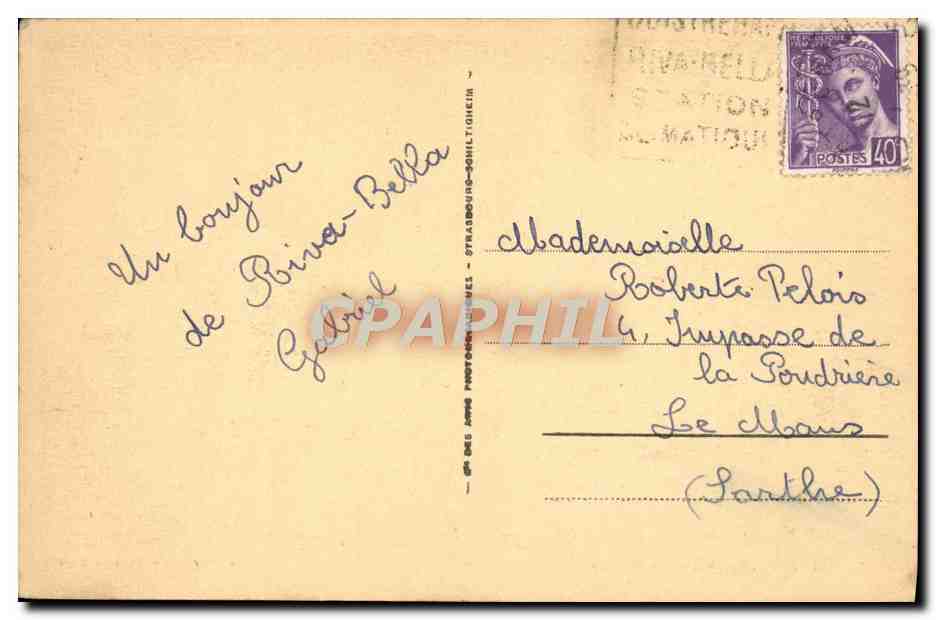 OUISTREHAM
RIVA-BELLA
STATION
REPUBLIQUE
FRANCAISE
POSTES 40
Un bonjour
de Riva-Bella
Gabriel
Cie DES ARTS PHOTOMECANIQUES - STRASBOURG-SCHILTIGHEIM -
Mademoiselle
Roberte Pelois
4, Impasse de
la Poudrière
Le Mans
(Sarthe)
CPAPHIL